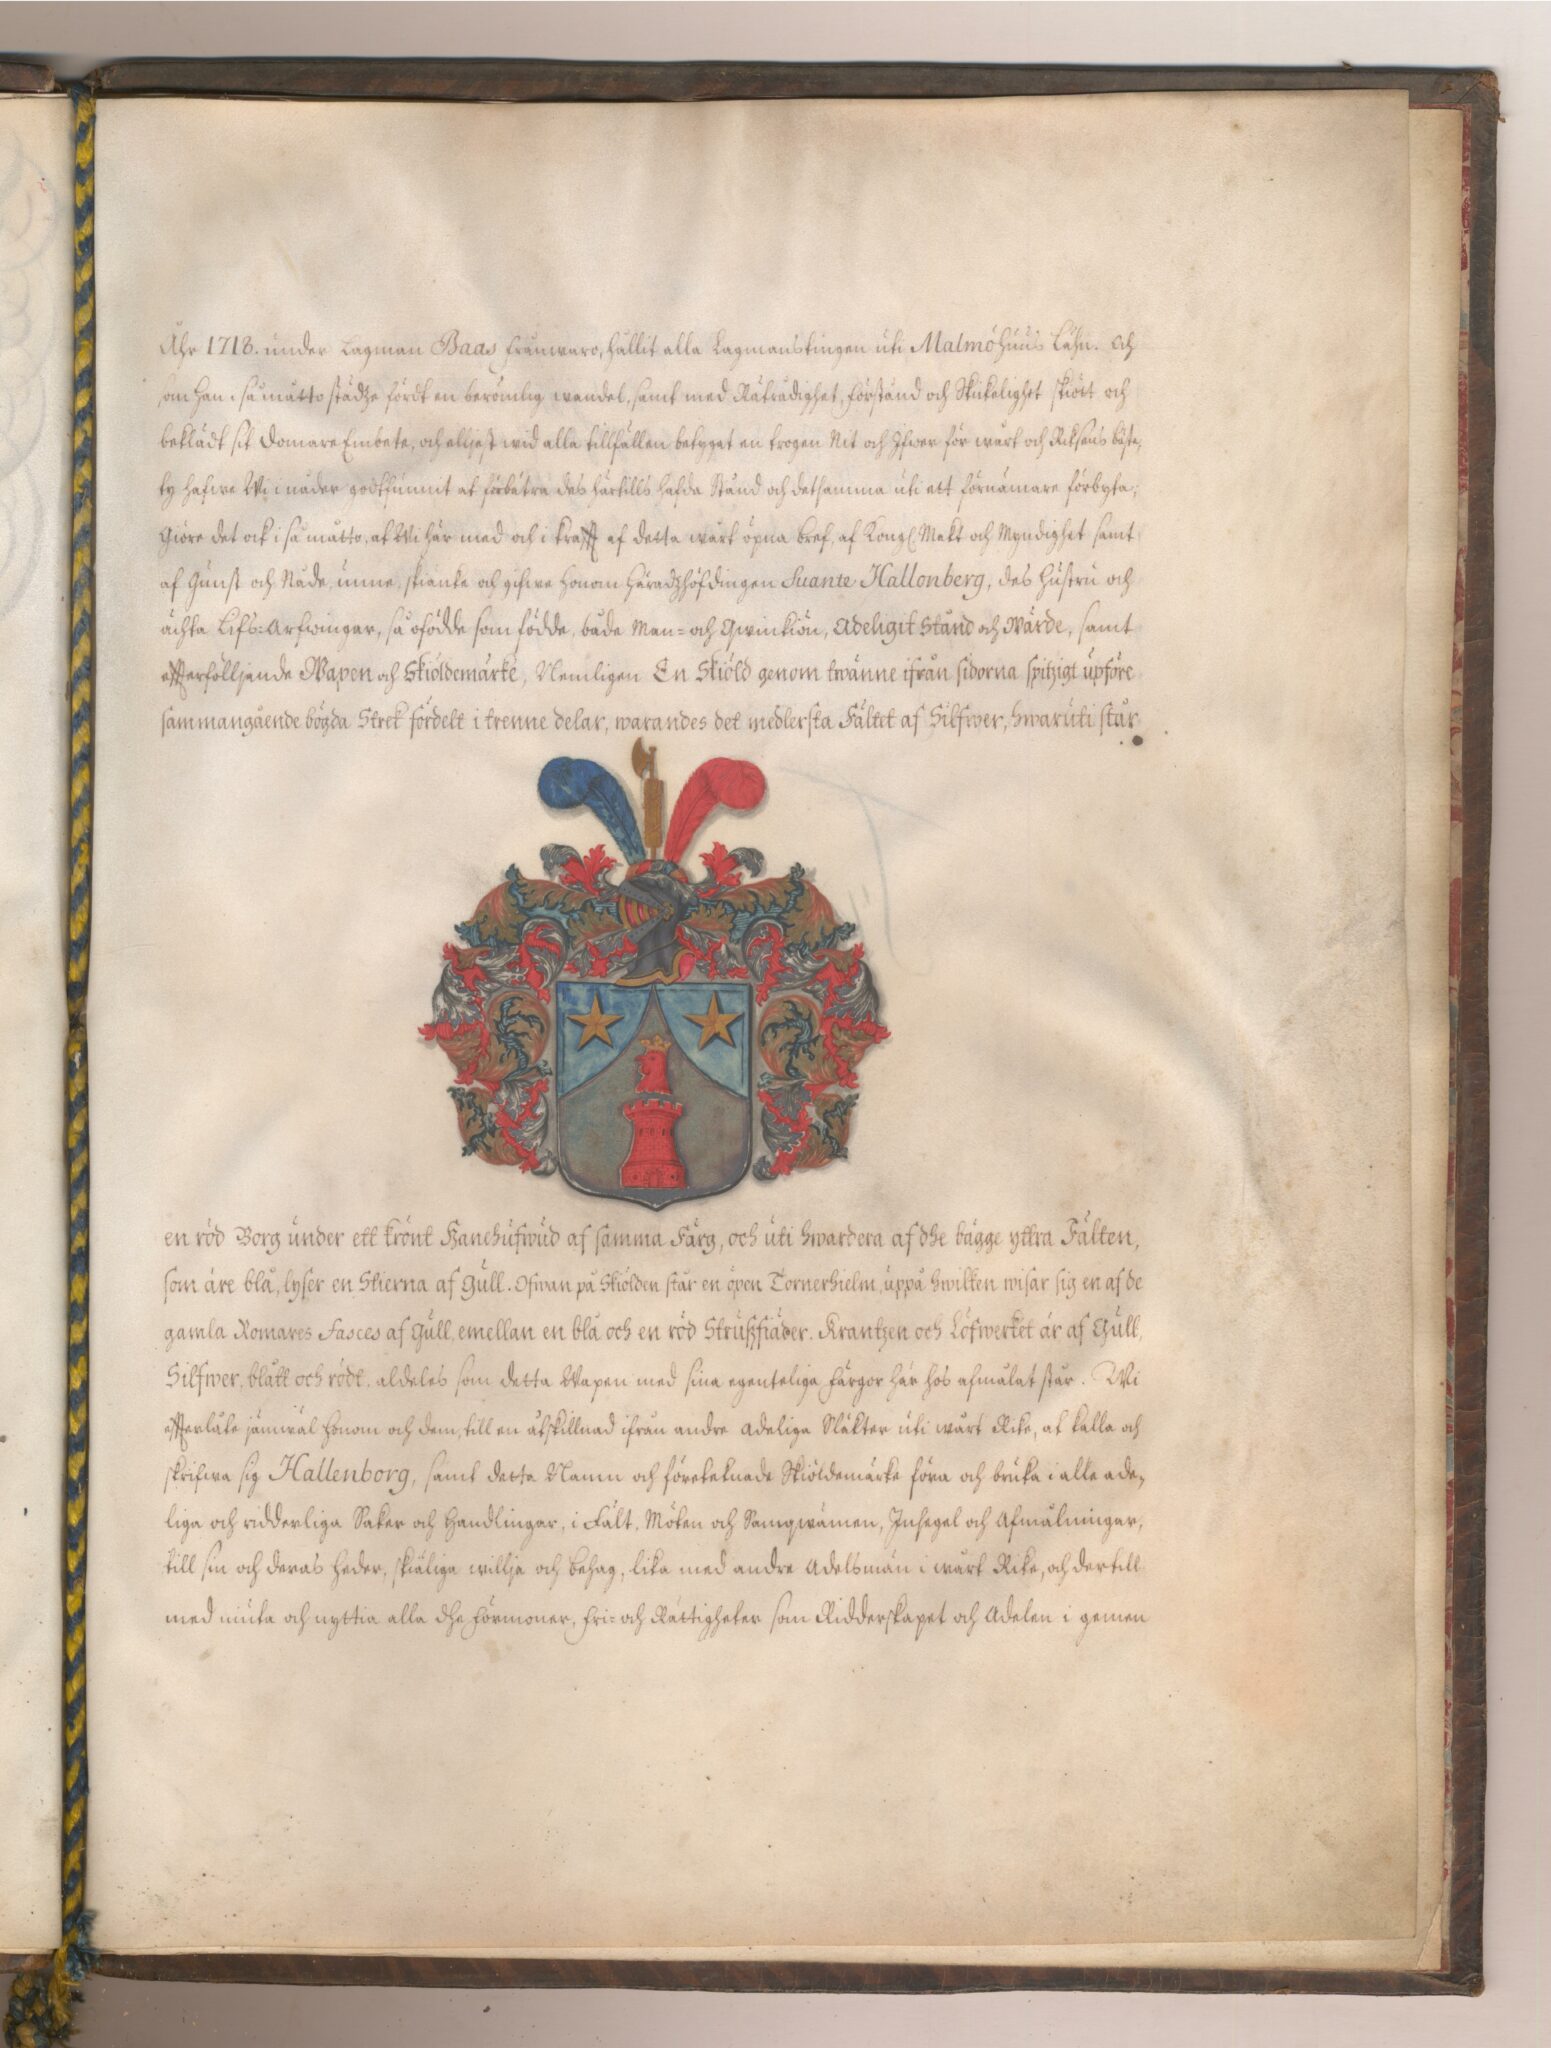 Åhr 1718. under Lagman Baas frånwaro, hållit alla Lagmanstingen uti Malmöhuus Lähn. Och
som han i så måtto städze fördt en berömlig wandel, samt med Rättrådighet, förstånd och Skickelighet skiött och
beklädt sit Domare Embete, och elliest wid alla tillfällen betyget en trogen Nit och Ifwer för wårt och Riksens bästa,
ty hafwe Wi i nåder godtfunnit at förbätra des härtills hafda Stånd och detsamma uti ett förnämare förbyta;
Giöre det ock i så måtto, at Wi här med och i krafft af detta wårt öpna bref, af Kongl Makt och Myndighet samt
af Gunst och Nåde, unne, skiänke och gifwe honom Häradzhöfdingen Suante Hallonberg, des Hustru och
ächta Lifs-Arfwingar, så ofödde som födde, både Man- och Qwinkiön, Adeligit Stånd och Wärde, samt
effterfölljande Wapen och Skiöldemärke, Nemligen En Skiöld genom twänne ifrån sidorna spitzigt upföre
sammangående bögda Strek fördelt i trenne delar, warandes det medlersta Fältet af Silfwer, hwaruti står
en röd Borg under ett krönt Hanehufwud af samma Färg, och uti hwardera af dhe bägge yttra Fälten,
som äre blå, lyser en Stierna af Gull. Ofwan på Skiölden står en öpen Tornerhielm, uppå hwilken wisar sig en af de
gamla Romares Fasces af Gull, emellan en blå och en röd Strußfiäder. Krantzen och Löfwerket är af Gull,
Silfwer, blått och rödt, aldeles som detta Wapen med sina egenteliga färgor här hos afmålat står. Wi
effterlåte jämwäl honom och dem, till en åtskillnad ifrån andre Adeliga Släkter uti wårt Rike, at kalla och
skrifwa sig Hallenborg, samt detta Namn och företeknade Skiöldemärke föra och bruka i alle ade-
liga och ridderliga Saker och Handlingar, i Fält, Möten och Samqwämen, Insegel och Afmålningar,
till sin och deras heder, skiäliga willja och behag, lika med andre Adelsmän i wårt Rike, och dertill
med niuta och nyttia alla dhe förmoner, fri- och Rättigheter som Ridderskapet och Adelen i gemen